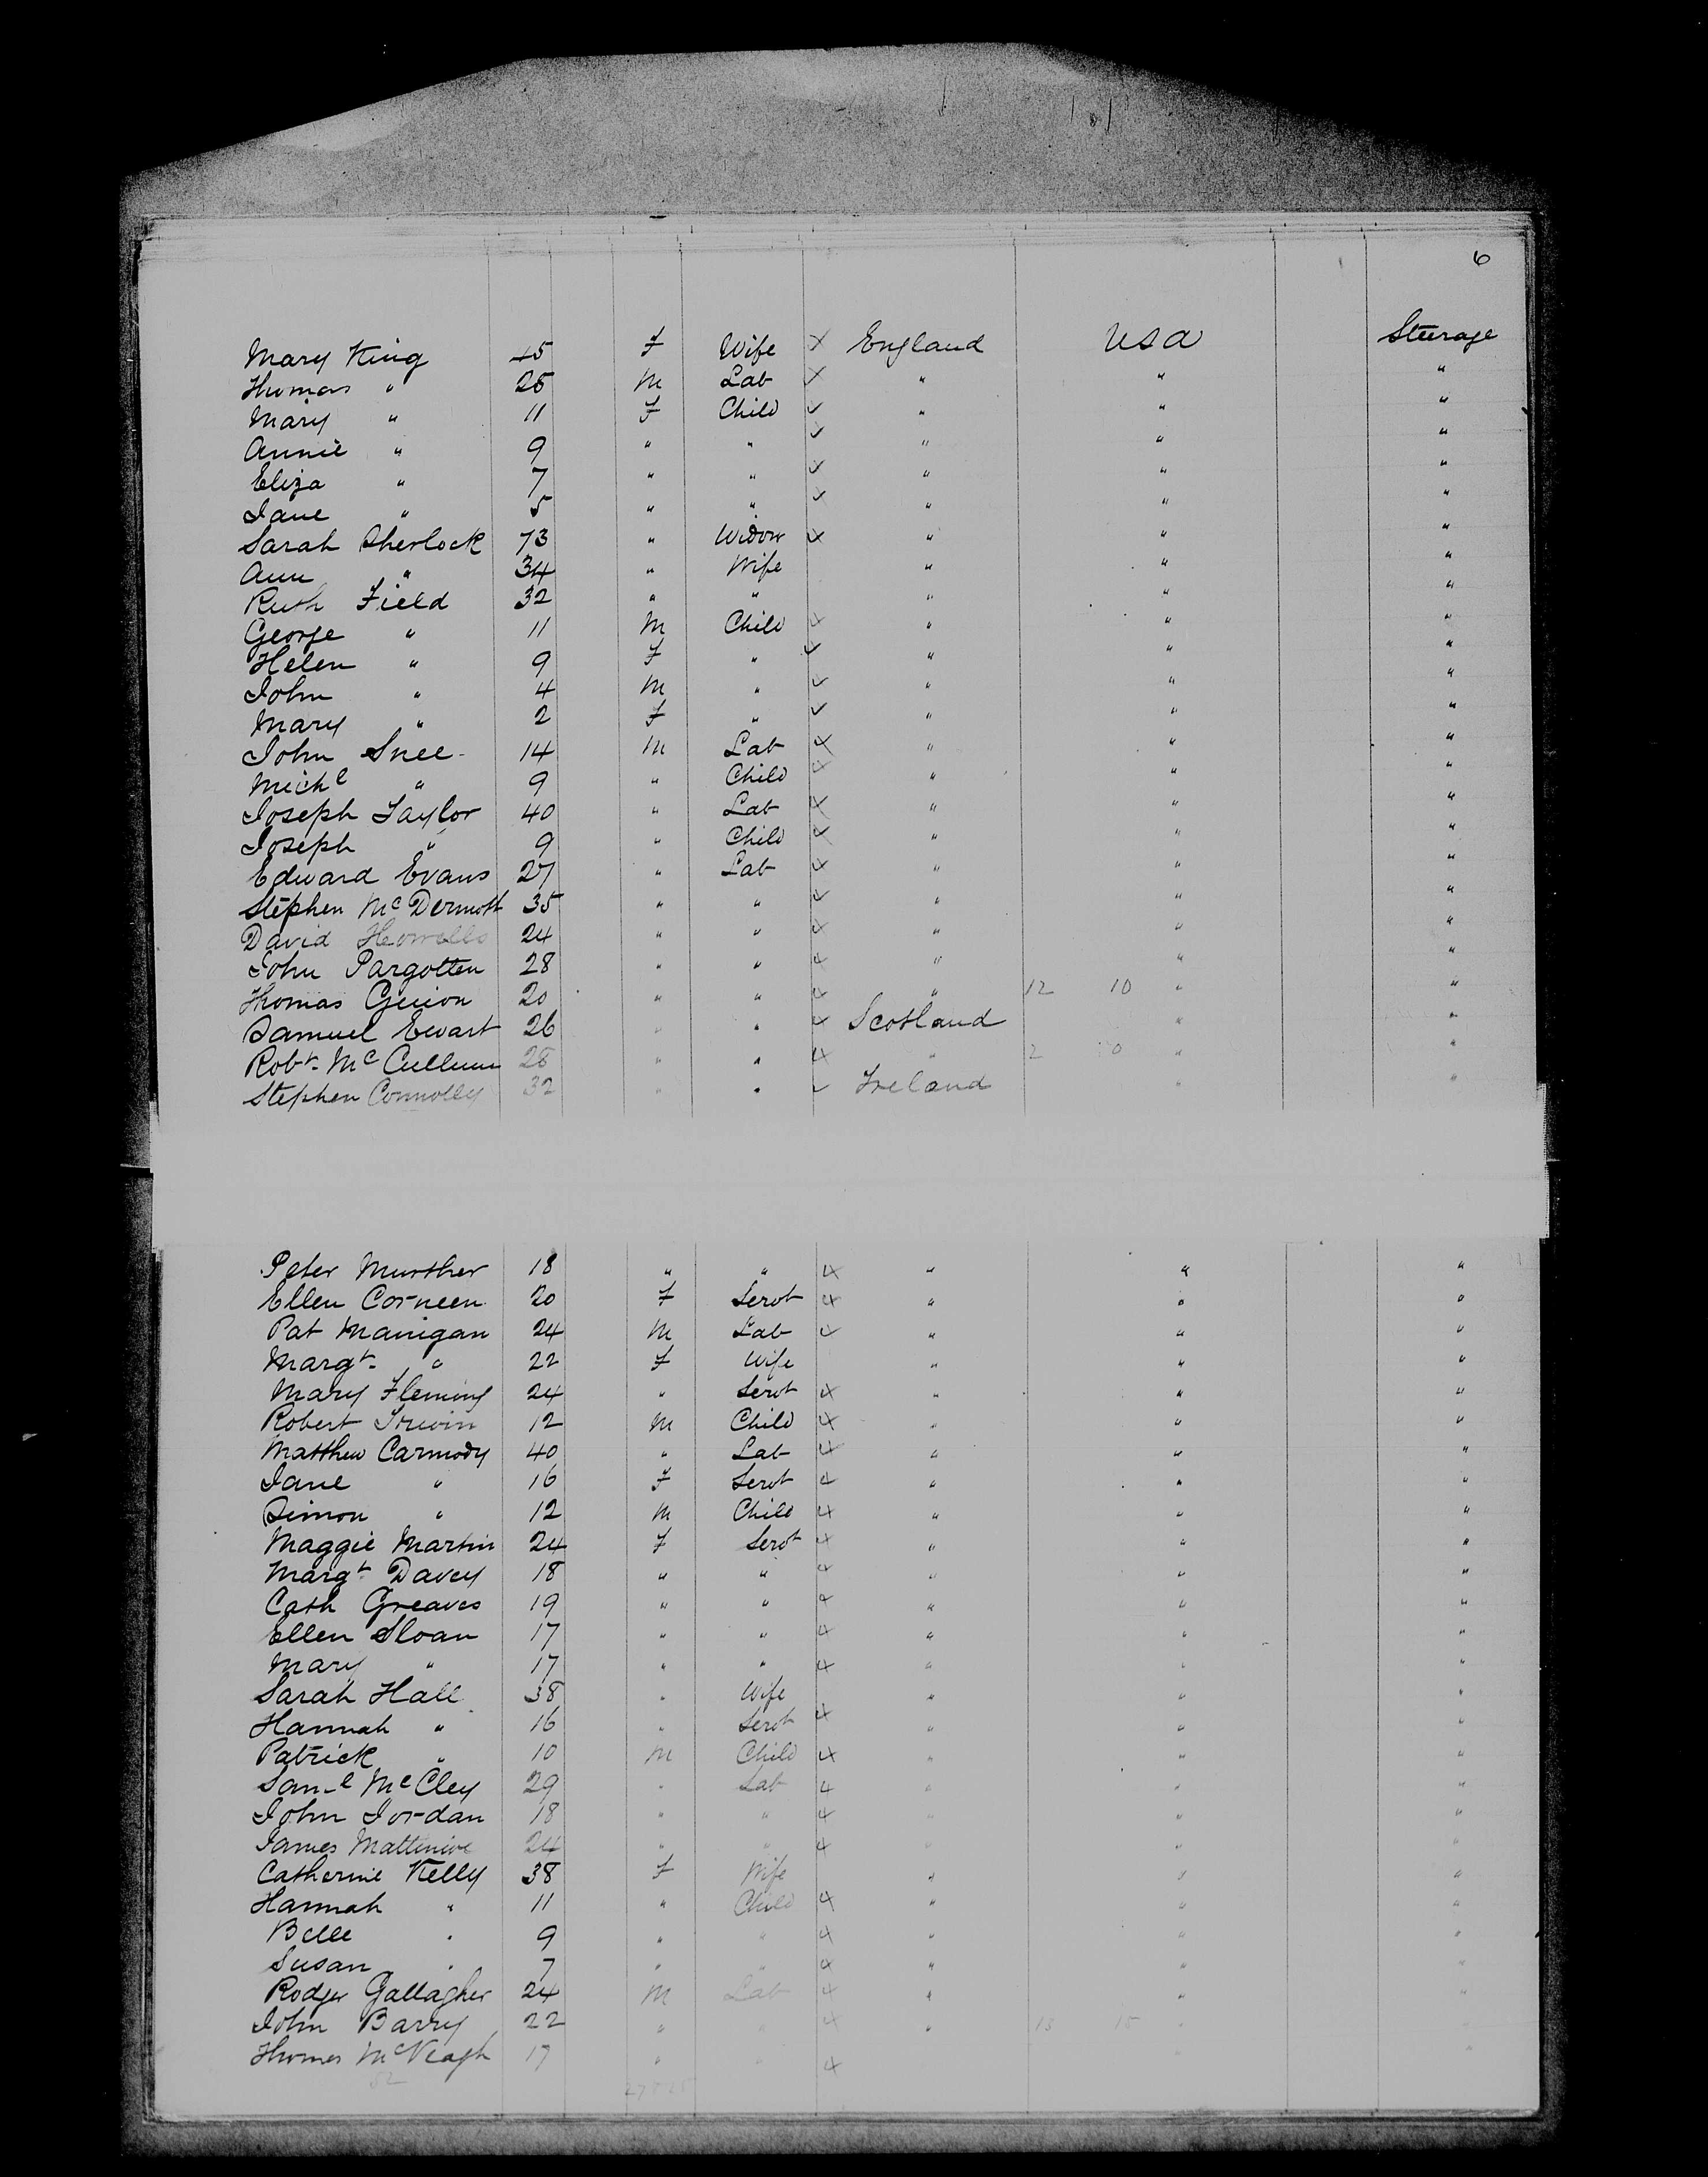 6
Mary King 45 F Wife x England USA Steerage
Thomas " 25 M Lab x " " "
Mary " 11 F Child ✓ " " "
Annie " 9 " " ✓ " " "
Eliza " 7 " " ✓ " " "
Jane " 5 " " ✓ " " "
Sarah Sherlock 73 " Widow x " " "
Ann " 34 " Wife " " "
Ruth Field 32 " " " " "
George " 11 M Child x " " "
Helen " 9 F " ✓ " " "
John " 4 M " ✓ " " "
Mary " 2 F " ✓ " " "
John Snee 14 M Lab x " " "
Michl " 9 " Child x " " "
Joseph Taylor 40 " Lab x " " "
Joseph " 9 " Child x " " "
Edward Evans 27 " Lab x " " "
Stephen McDermott 35 " " x " " "
David Howells 24 " " x " " "
John Pargotten 28 " " x " " "
Thomas 20 " " x " 12 10 " "
Samuel Ewart 26 " " x Scotland " "
Robt. McCullum 28 " " x " 2 0 " "
Stephen Connolly 32 " " ✓ Ireland " "
Peter Murther 18 " " x " " "
Ellen Corneen 20 F Servt x " " "
Pat Manigan 24 M Lab x " " "
Margt. " 22 F Wife " " "
Mary Fleming 24 " Servt x " " "
Robert Irwin 12 M Child x " " "
Matthew Carmody 40 " Lab x " " "
Jane " 16 F Servt x " " "
Simon " 12 M Child x " " "
Maggie Martin 24 F Servt x " " "
Margt. Davey 18 " " x " " "
Cath Greaves 19 " " x " " "
Ellen Sloan 17 " " x " " "
Mary " 17 " " x " " "
Sarah Hall 38 " Wife " " "
Hannah " 16 " Servt x " " "
Patrick " 10 M Child x " " "
Saml McCley 29 " Lab x " " "
John Jordan 18 " " x " " "
James 24 " " x " " "
Catherine Kelly 38 F Wife " " "
Hannah " 11 " Child x " " "
Belle " 9 " " x " " "
Susan " 7 " " x " " "
Rodger Gallagher 24 M Lab x " " "
John Barry 22 " " x " 13 15 " "
Thomas McVeagh 17 " " x " "
52